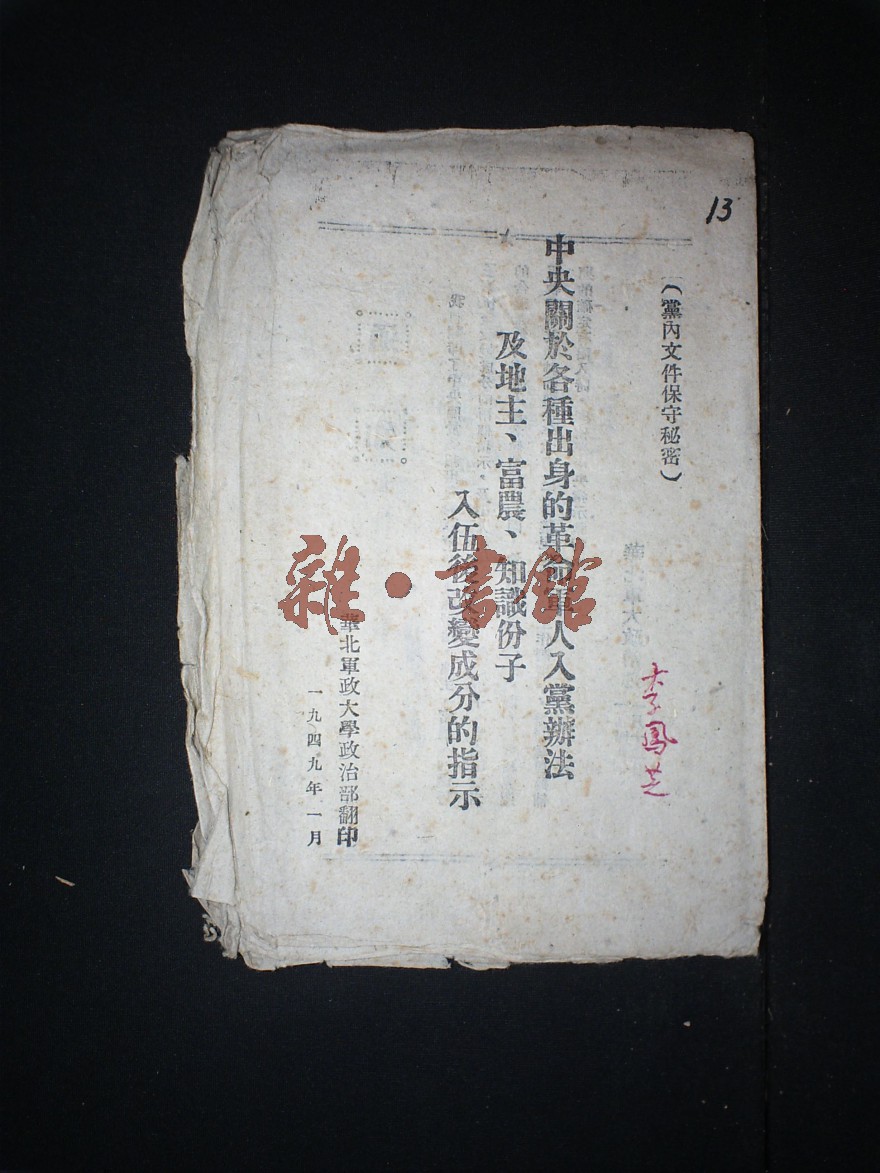 13
（黨內文件保守秘密）
中央關於各種出身的革命軍人入黨辦法
及地主、富農、知識份子
入伍後改變成分的指示
華北軍政大學政治部翻印
一九四九年一月
李鳳芝
雜·書館